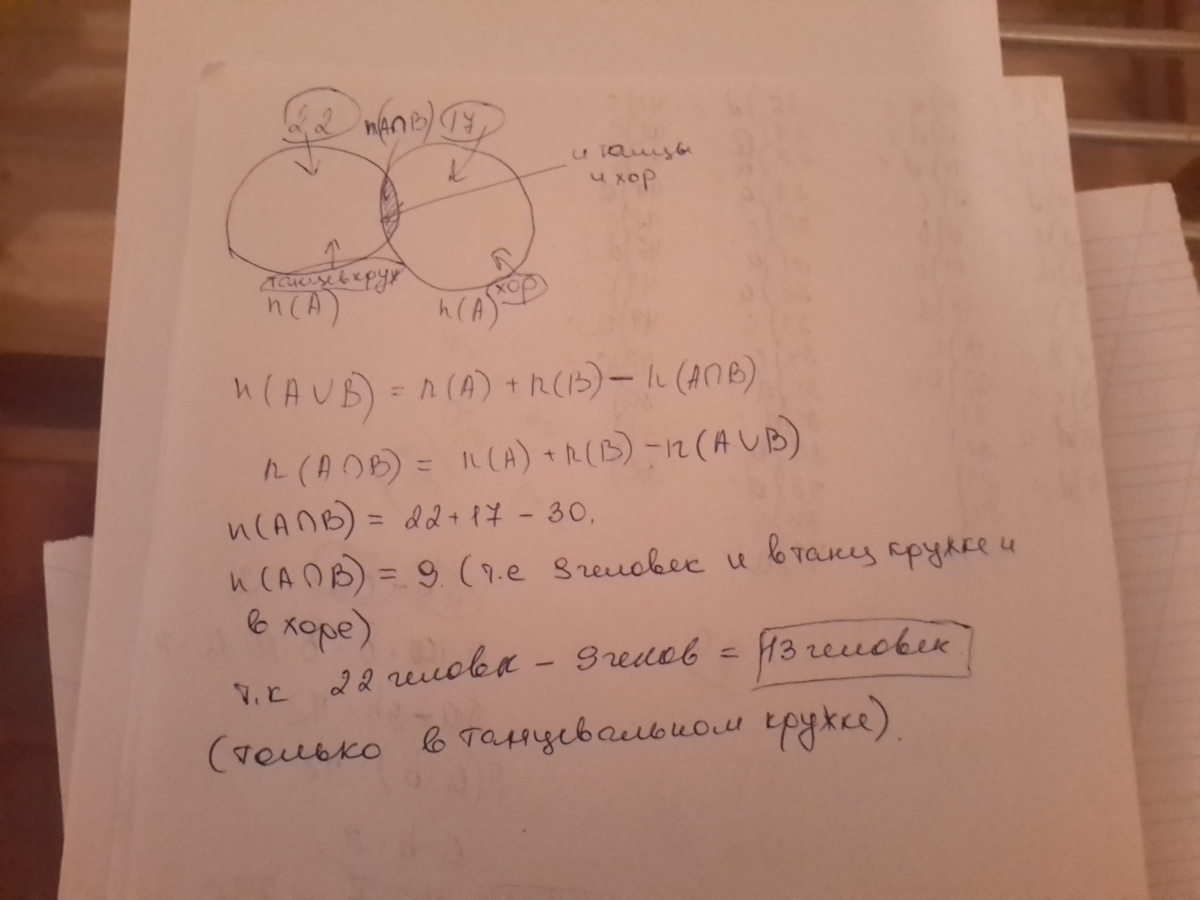 22 n(A∩B) 17
и танцы
и хор
танцев круж
хор
n(A) n(A)
n(A∪B) = n(A) + n(B) – n(A∩B)
n(A∩B) = n(A) + n(B) – n(A∪B)
n(A∩B) = 22 + 17 – 30.
n(A∩B) = 9. (т.е 9 человек и в танц кружке и
в хоре)
т.к 22 человек – 9 = 13 человек
(только в танцевальном кружке).